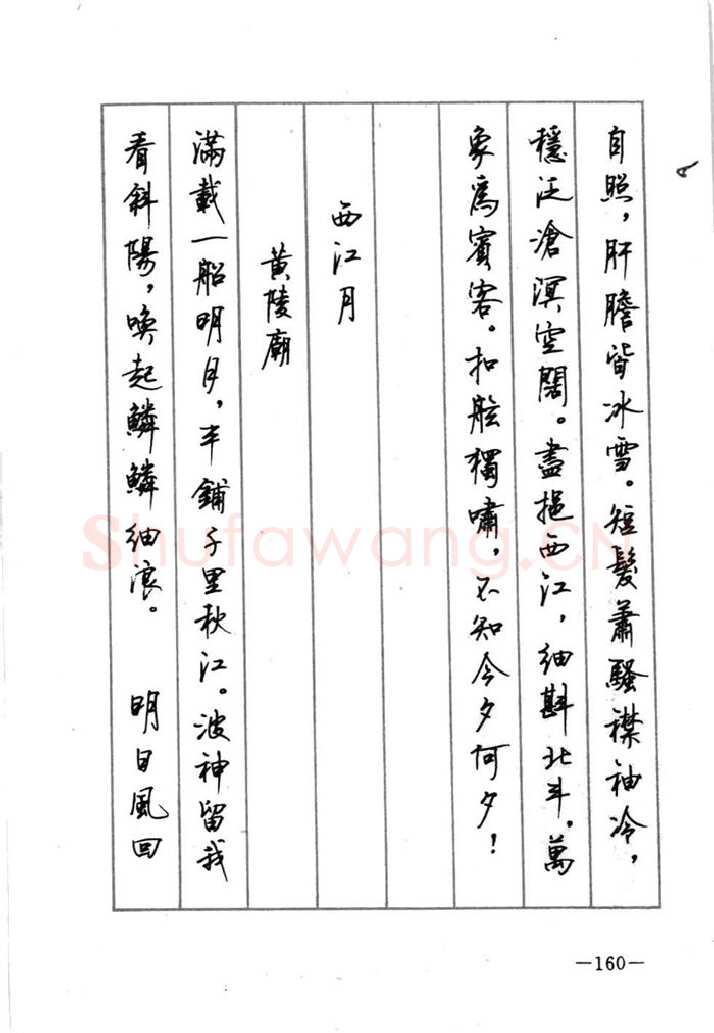 自照，肝膽皆冰雪。短髮蕭騷襟袖冷，
穩泛滄溟空闊。盡挹西江，細斟北斗，萬
象爲賓客。扣舷獨嘯，不知今夕何夕！
西江月
黄陵廟
滿載一船明月，平鋪千里秋江。波神留我
看斜陽，喚起鱗鱗細浪。 明日風回
—160—
Shufawang.CN